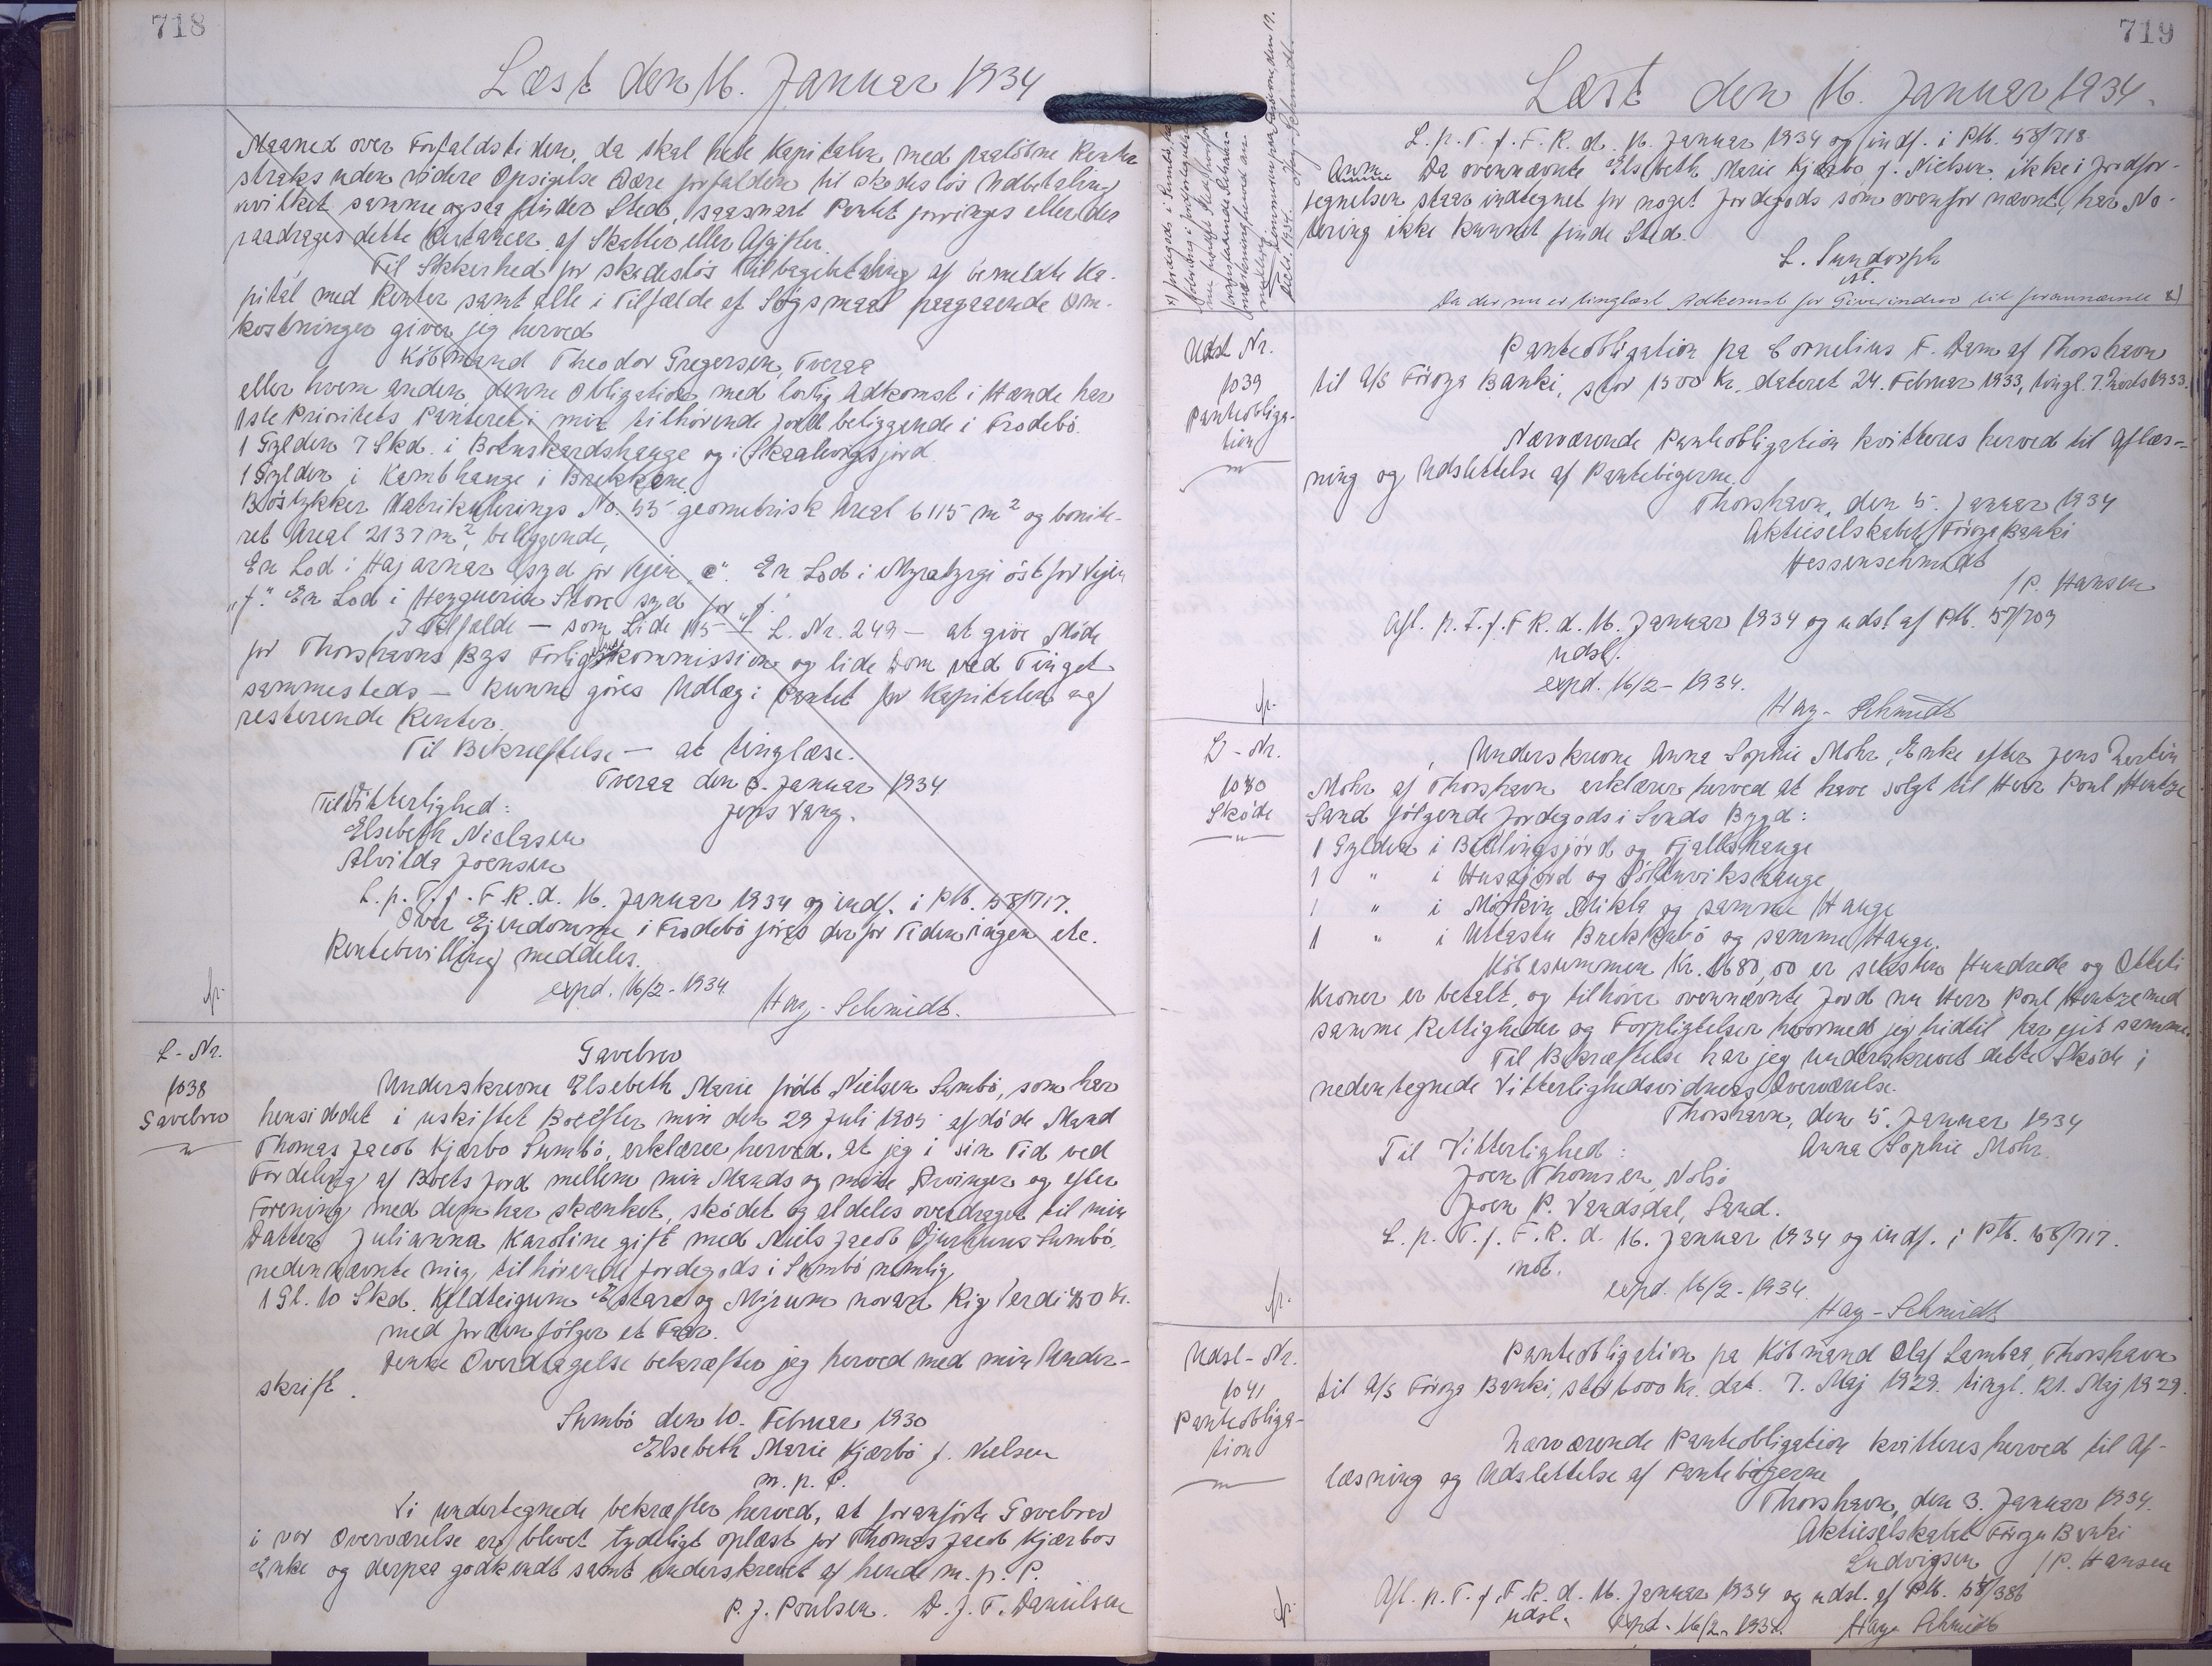 718
Læst den 16. Januar 1934
Maaned over Forfaldstiden, da skal hele Kapitalen med paaløbne Renter
straks uden videre Opsigelse være forfalden til skadesløs Udbetaling
hvilket samme ogsaa finder Sted, saasnart Pantet forringes eller der
paadrages dette Restancer af Skatter eller Afgifter.
Til Sikkerhed for skadesløs Tilbagebetaling af bemeldte Ka-
pital med Renter samt alle i Tilfælde af Søgsmaal paagaaende Om-
kostninger giver jeg herved
Købmand Theodor Gregersen, Tveraa
eller hvem anden, denne Obligation med lovlig Adkomst i Hænde har
1ste Prioritets Panteret i min tilhørende Jord beliggende i Frodebø.
1 Gylden 7 Skd. i Botnskardshauge og i Skaalevigsjord
1 Gylden i Kambhauge i Brekkene.
Bøstykker Matrikulerings No. 55 geometrisk Areal 6115 m² og bonite-
ret Areal 2137 m², beliggende,
En Lod i Hajarnar syd for Vejen „e". En Lod i Myratyrgi øst for Vejen
„f." En Lod i Heygverin Store syd for „f."
I Tilfælde — som Lide 115 — L. Nr. 249 — at give Møde
for Thorshavns Bys Forligskommission og lide Dom ved Tinget
sammesteds — kunne gøres Udlæg i Pantet for Kapitalen og
resterende Renter.
Til Bekræftelse — at tinglæse.
Tveraa den 3. Januar 1934
Til Vitterlighed:
Jens Vang.
Elsebeth Niclasen
Alvilda Joensen
L. p. T. f. F. R. d. 16. Januar 1934 og indf. i Ptb. 58/717.
Over Ejendomme i Frodebø føres der for Tiden ingen etc.
Rentebevilling meddeles.
expd. 16/2 - 1934.
Hay - Schmidt.
L - Nr.
1038
Gavebrev
Gavebrev
Underskrevne Elsebeth Marie født Nielsen Sumbø, som har
hensiddet i uskiftet Bo efter min den 29 Juli 1905 afdøde Mand
Thomas Jacob Kjærbo Sumbø, erklærer herved, at jeg i sin Tid ved
Fordeling af Boets Jord mellem min Mands og mine Arvinger og efter
Forening med dem har skænket, skødet og aldeles overdraget til min
Datter Julianna Karoline gift med Niels Jacob Djurhuus Sumbø,
nedennævnte mig tilhørende Jordegods i Sumbø nemlig
1 Gl. 10 Skd. Keldteigum Estara og Mýrum norara Rig Verdi 450 Kr.
med Jorden følger et Faar.
Denne Overdragelse bekræfter jeg herved med min Under-
skrift.
Sumbø den 10. Februar 1930
Elsebeth Marie Kjærbo f. Nielsen
m. p. P.
Vi undertegnede bekræfter herved, at foranførte Gavebrev
i vor Overværelse er blevet tydeligt oplæst for Thomas Jacob Kjærbos
Enke og derpaa godkendt samt underskrevet af hende m. p. P.
P. J. Poulsen. D. J. F. Danielsen
719
Læst den 16. Januar 1934.
L. p. T. f. F. R. d. 16. Januar 1934 og indf. i Ptb. 58/718.
Anm. Da ovennævnte Elsebeth Marie Kjærbo f. Nielsen ikke i Jordfor-
tegnelsen staar indtegnet for noget Jordegods som ovenfor nævnt, har No-
tering ikke kunnet finde Sted.
L. Sundorph
st.
Da der nu er tinglæst Adkomst for Giverinden til forannævnte x)
Hay-Schmidt.
Udsl Nr.
1039
Panteobliga-
tion
Panteobligation pa Cornelius F. Dam af Thorshavn
til A/S Föroya Banki, stor 1500 Kr. dateret 24. Februar 1933, tingl. 7. Marts 1933.
Nærværende Panteobligation kvitteres herved til Aflæs-
ning og Udslettelse af Pantebøgerne.
Thorshavn, den 5. Januar 1934
Aktieselskabet Föroya Banki
Hessenschmidt
/P. Hansen
Afl. p. T. f. F. R. d. 16. Januar 1934 og udsl af Ptb. 57/709
udsl.
expd. 16/2 - 1934.
Hay - Schmidt
L - Nr.
1040
Skøde
Underskrevne Anna Sophie Mohr, Enke efter Jens Martin
Mohr af Thorshavn erklærer herved at have solgt til Herr Poul Hentze
Sand følgende Jordegods i Sands Bygd:
1 Gylden i Bidlingsjørd og Fjallshauge
1 " i Husajørd og Søltuvikshauge
1 " i Mørkin Mikla og samme Hauge
1 " i Utastu Brekkubø og samme Hauge.
Købesummen Kr. 1680,00 er seksten Hundrede og Otteti
Kroner er betalt, og tilhører ovennævnte Jord nu Herr Poul Hentze med
samme Rettigheder og Forpligtelser hvormed jeg hidtil har ejet samme.
Til Bekræftelse har jeg underskrevet dette Skøde i
nedentegnede Vitterlighedsvidners Overværelse.
Thorshavn, den 5. Januar 1934
Til Vitterlighed:
Anna Sophie Mohr.
Joen Thomsen, Nolsø
Joen P. Vandsdal, Sand.
L. p. T. f. F. R. d. 16. Januar 1934 og indf. i Ptb. 58/717.
not.
expd. 16/2 - 1934.
Hay - Schmidt
Udsl - Nr.
1041
Panteobliga-
tion
Panteobligation pa Købmand Olaf Lambaa, Thorshavn
til A/S Föroya Banki, stor 6000 Kr. dat. 7. Maj 1929. tingl. 21. Maj 1929.
Nærværende Panteobligation kvitteres herved til Af-
læsning og Udslettelse af Pantebøgerne
Thorshavn, den 3. Januar 1934.
Aktieselskabet Föroya Banki
Ludvigsen /P. Hansen
Afl. p. T. f. F. R. d. 16. Januar 1934 og udsl. af Ptb. 58/386
udsl. expd. 16/2 - 1934. Hay Schmidt